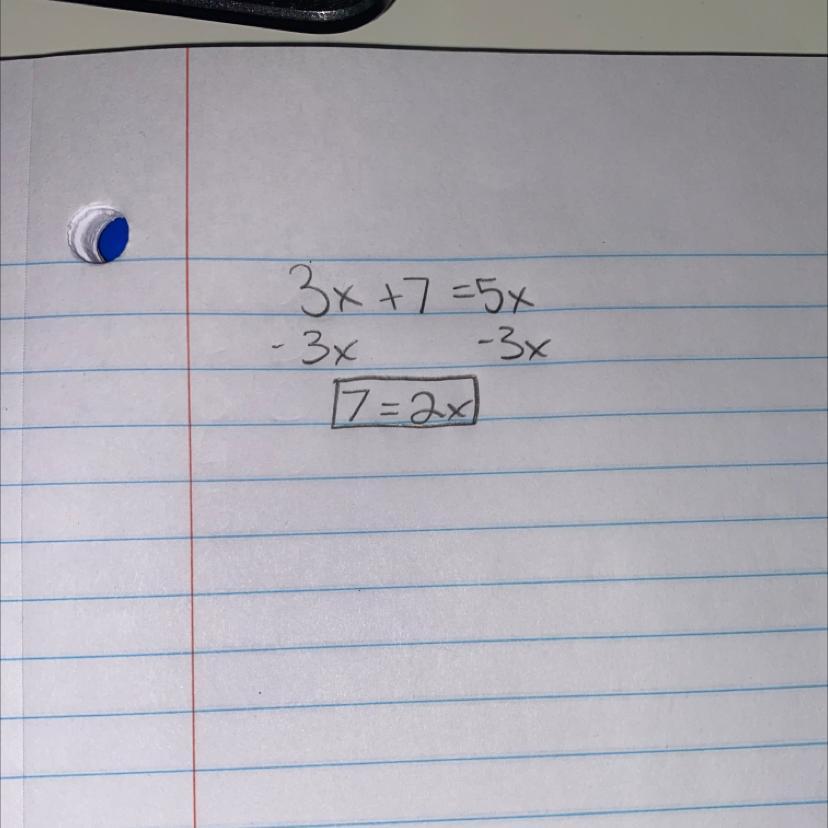 3x + 7 = 5x
- 3x - 3x
7 = 2x